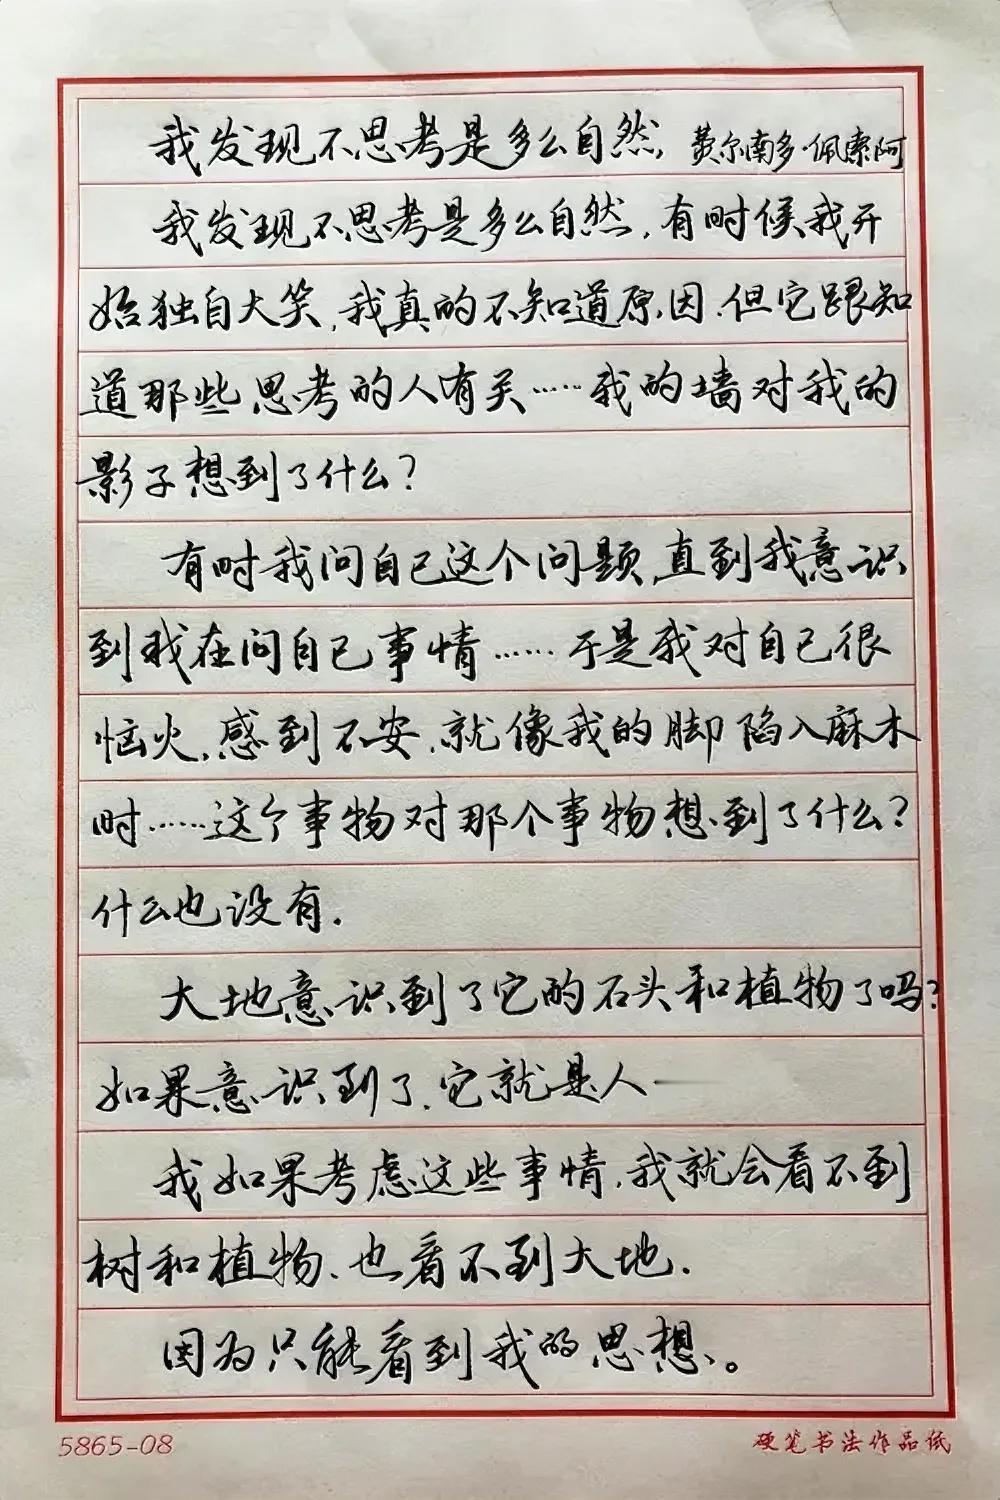 我发现不思考是多么自然, 费尔南多·佩索阿
我发现不思考是多么自然,有时候我开
始独自大笑,我真的不知道原因.但它跟知
道那些思考的人有关……我的墙对我的
影子想到了什么?
有时我问自己这个问题,直到我意识
到我在问自己事情……于是我对自己很
恼火,感到不安.就像我的脚陷入麻木
时……这个事物对那个事物想到了什么?
什么也没有.
大地意识到了它的石头和植物了吗?
如果意识到了.它就是人——
我如果考虑这些事情,我就会看不到
树和植物、也看不到大地.
因为只能看到我的思想。
5865-08
硬笔书法作品纸